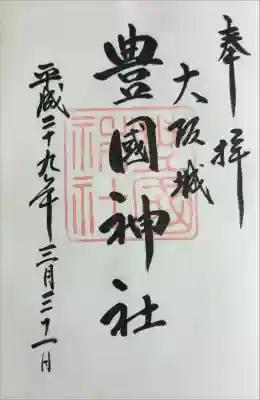 奉拝
大阪城
豊國神社
平成二十九年三月三十一日